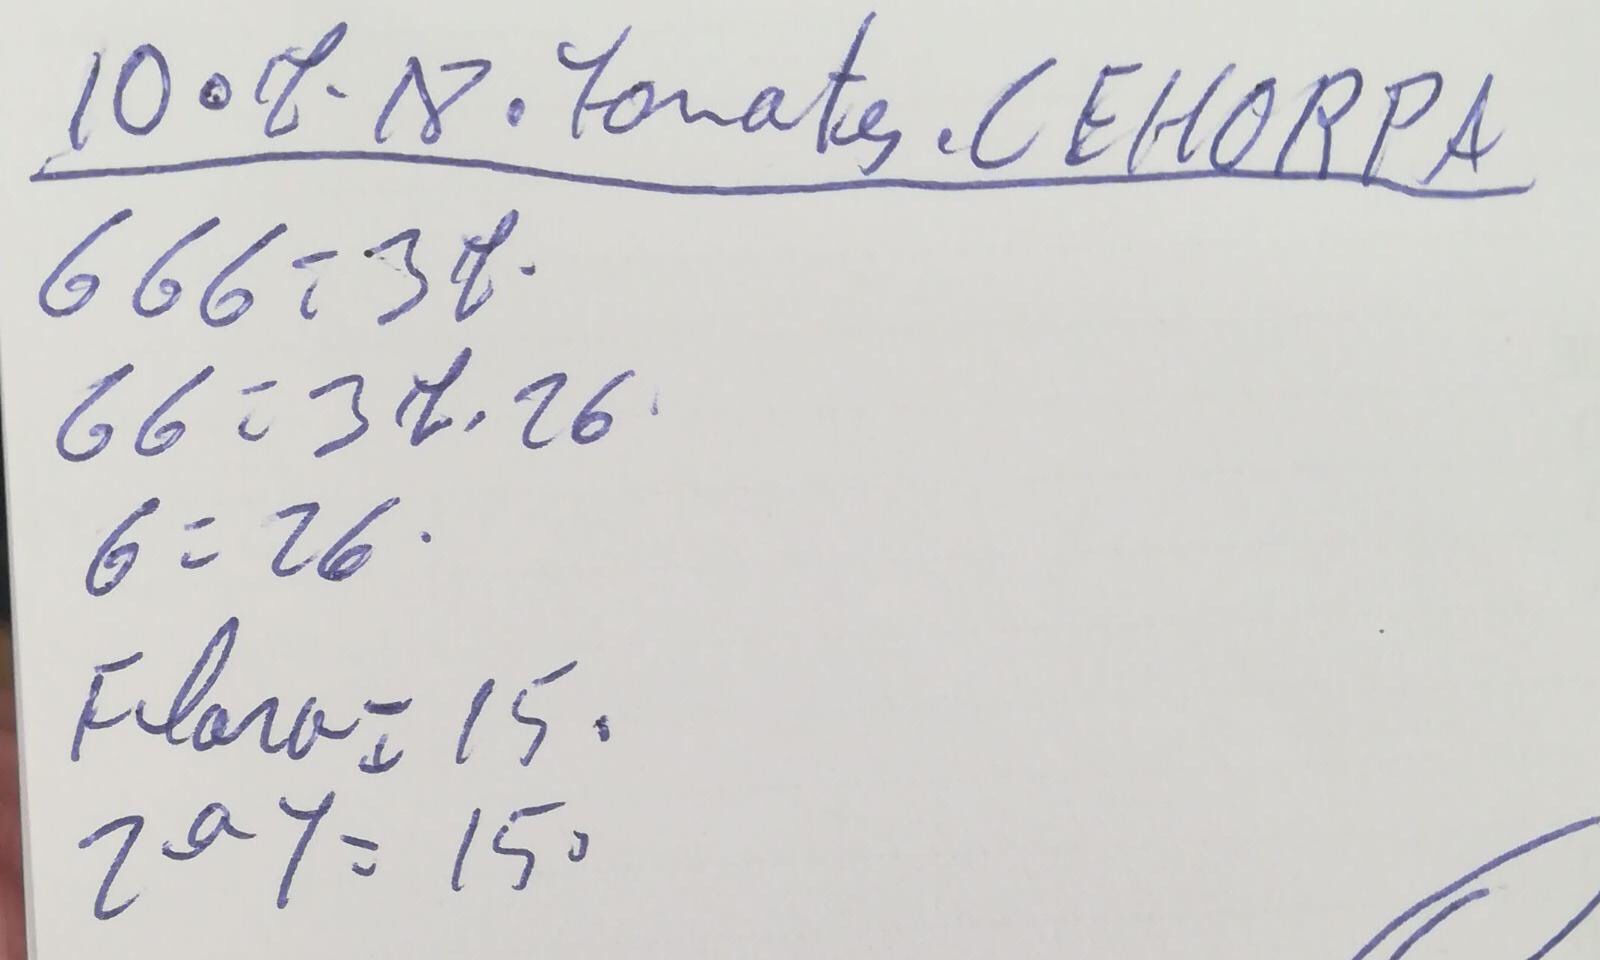 10. 8. 18. Tomates. CEHORPA
666 = 38.
66 = 38. 26.
6 = 26.
Flora = 15.
2ª Y = 15.